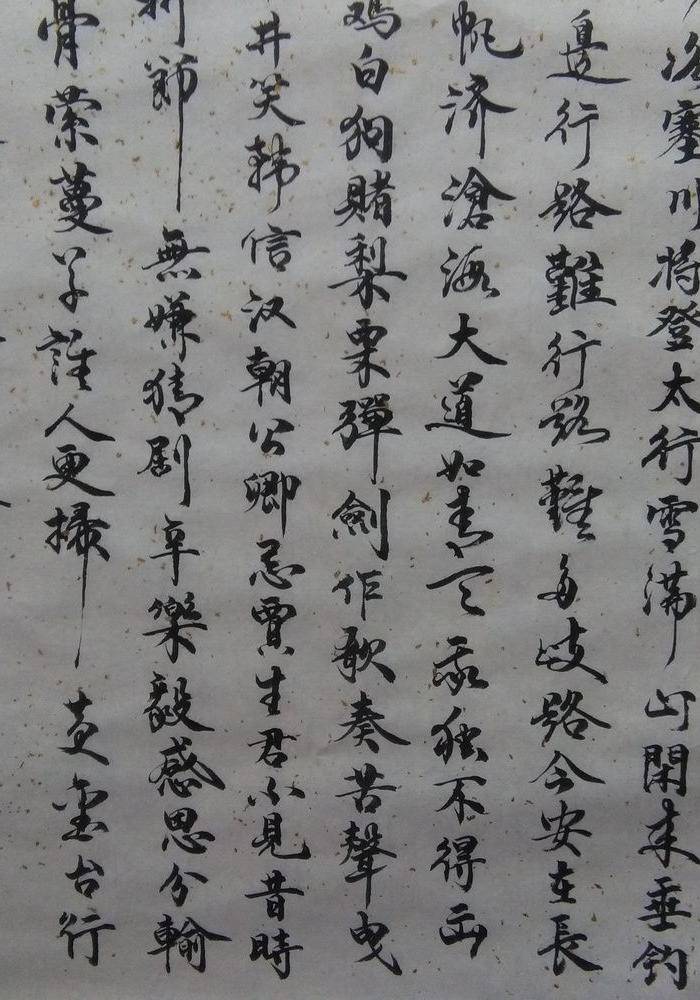 冰塞川将登太行雪满山閑来垂钓
邊行路難行路難多歧路今安在長
帆济滄海大道如青天我独不得出
鸡白狗赌梨栗彈劍作歌奏苦聲曳
井笑韩信汉朝公卿忌賈生君不見昔時
折節無嫌猜劇辛樂毅感恩分輸
骨萦蔓草誰人更掃黄金台行